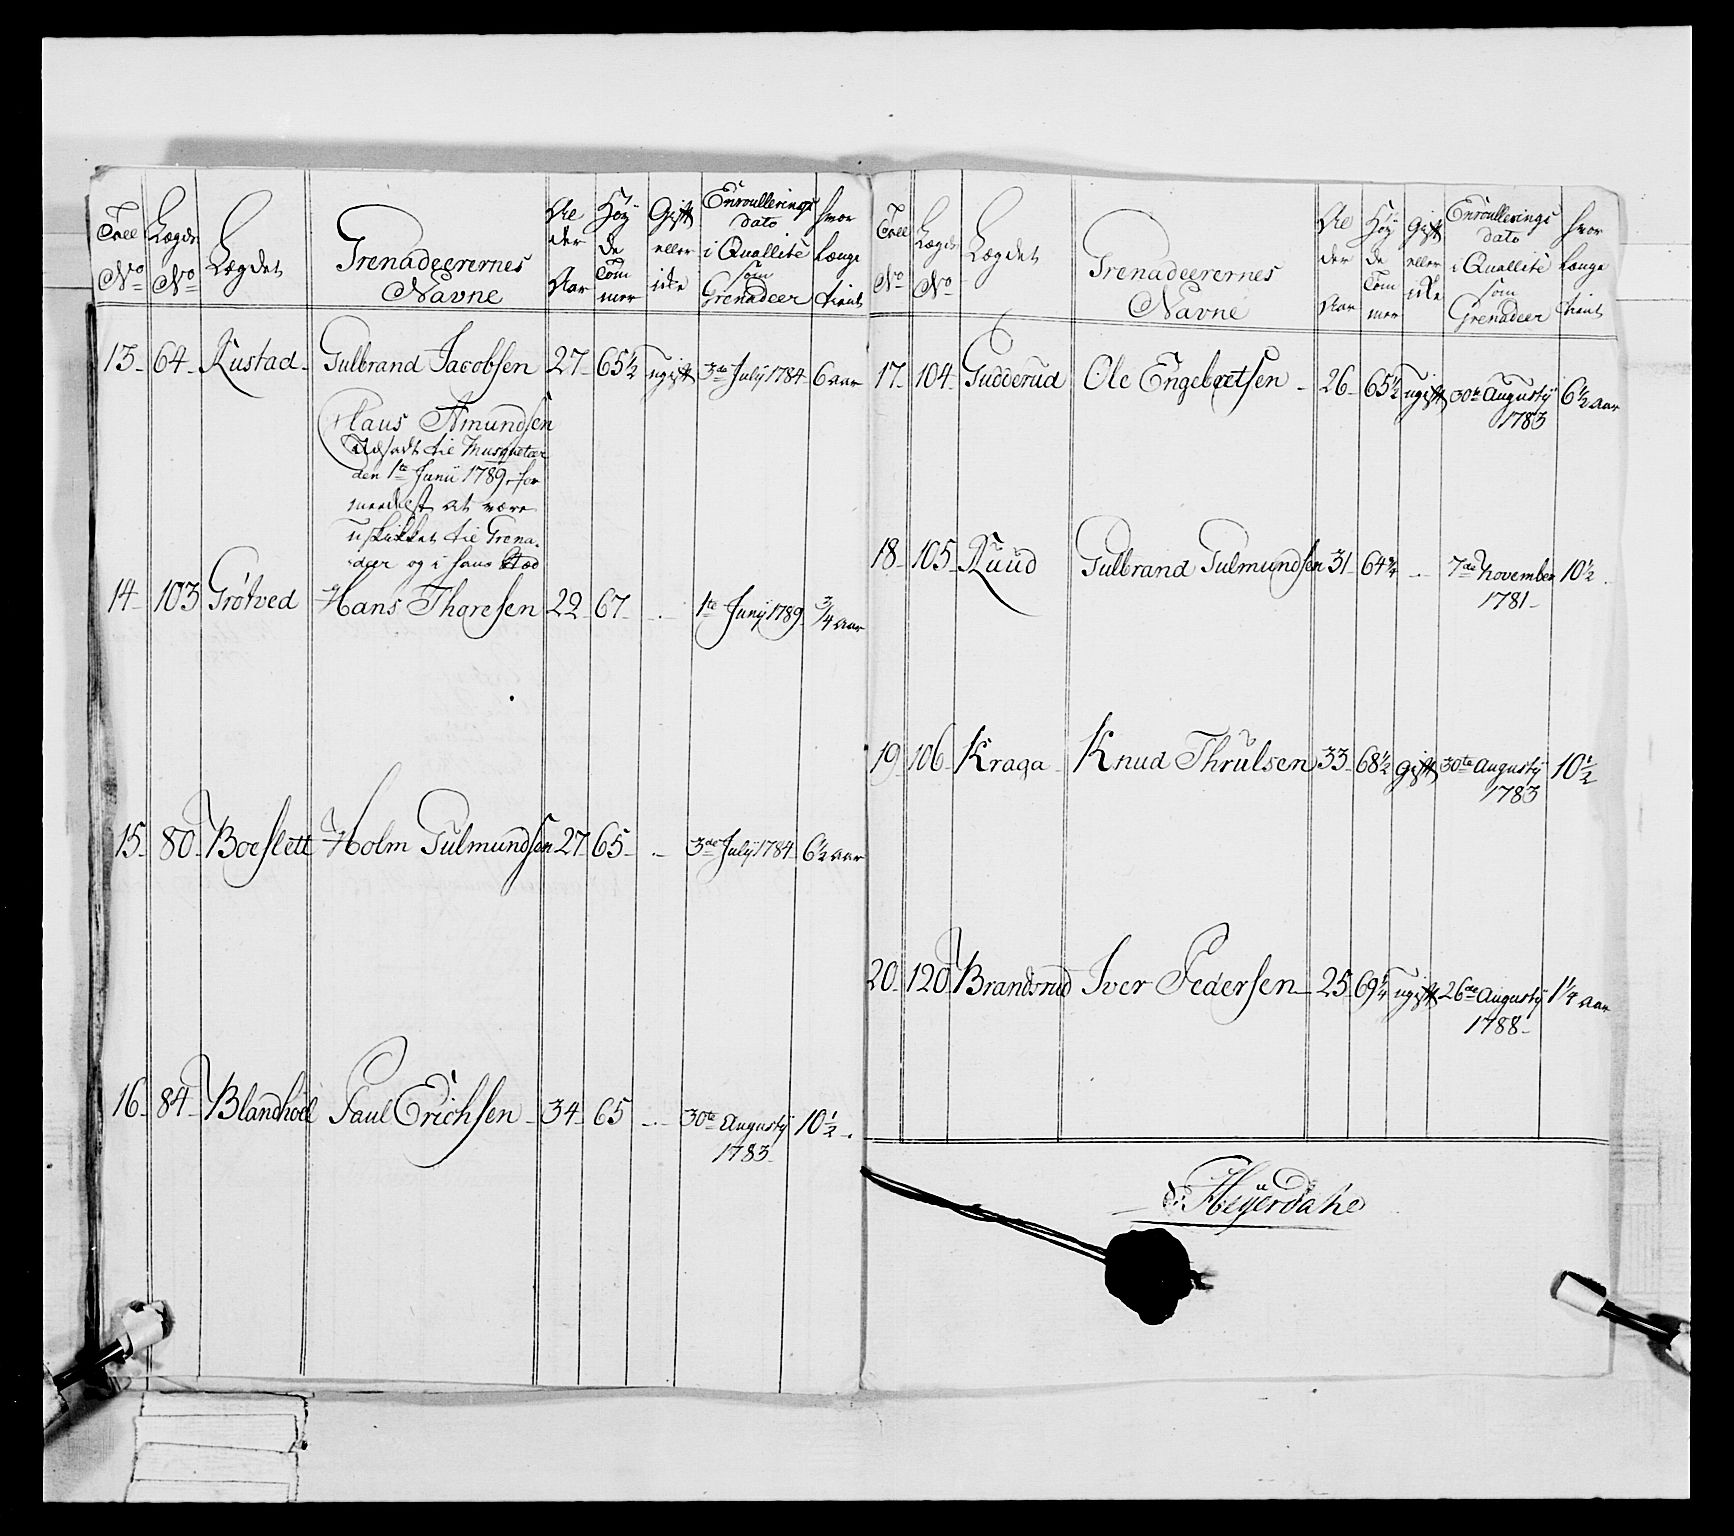 Tall No Lægds No Lægdet Grenadeerernes Navne Al der Aar Høy de Tom mer Gift eller ikke Enroullerings dato i Quallitè som Grenadeer hvor længe tient
13. 64. Rustad. Gulbrand Jacobsen 27. 65½ ugift 3de July 1784. 6 aar
Claus Amundsen
Udsadt til Musquetær
den 1te Junii 1789. for
meedelst at være
uskikket til Grena-
deer og i hans Stæd
14. 103 Grøtved Hans Thoresen 22. 67. 1te Junij 1789. ¾ aar
15. 80. Boeslett Holm Gulmundsen 27 65. 3de July 1784. 6½ aar
16. 84. Blandhoel Paul Erichsen 34. 65 30te Augustij 10½.
1783.
Tall No Lægds No Lægdet Grenadeerernes Navne Al der Aar Høy de Tom mer Gift eller ikke Enroullerings dato i Quallitè som Grenadeer hvor længe tient
17. 104. Gudderud Ole Engebretsen 26. 65½ ugift 30te Augustij 6½ aar
1783
18. 105. Ruud Gulbrand Gulmundsen 31 64¾ 7de November 10½.
1781.
19. 106. Kraga Knud Thrulsen 33. 68½ gift 30te Augustij 10½
1783
20. 120. Brandsrud Iver Pedersen 25. 69¼ ugift 26de Augustij 1¼ aar
1788.
Heyerdahl